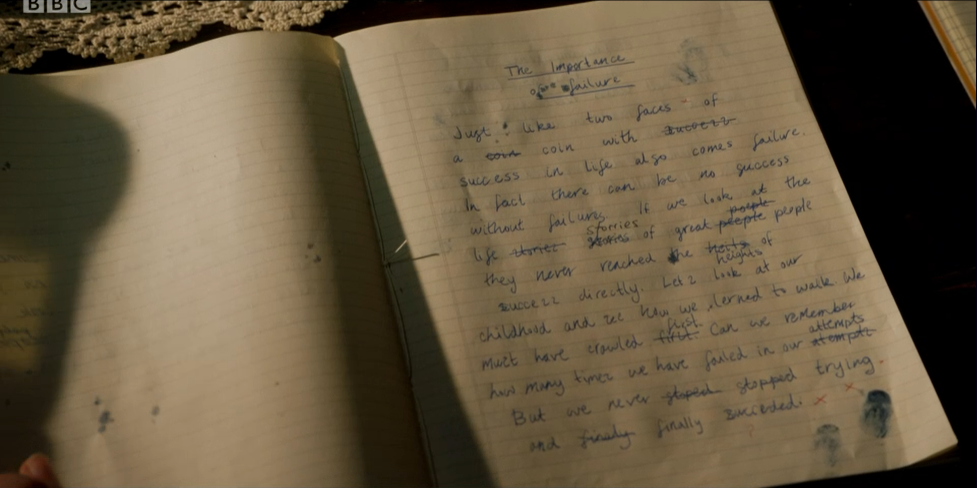 BBC
The Importance
of failure
Just like two faces - of
a coin coin with success
success in life also comes failure.
In fact there can be no success
without failures. If we look at the
life stories stories storries of great people people people
they never reached the heits heights of
success directly. Let's look at our
childhood and see how we lerned to walk. We
must have crawled first. first Can we remember
how many times we have failed in our attempts attempts
But we never stoped stopped trying.
and finaly finally succeded.